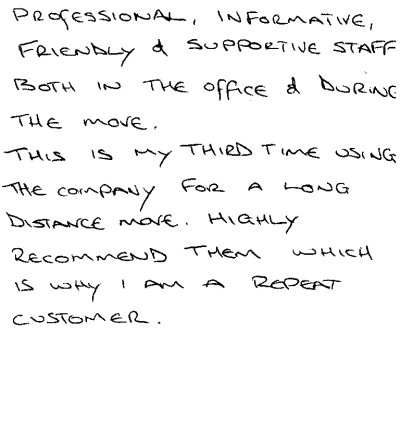 PROFESSIONAL, INFORMATIVE,
FRIENDLY & SUPPORTIVE STAFF
BOTH IN THE OFFICE & DURING
THE MOVE.
THIS IS MY THIRD TIME USING
THE COMPANY FOR A LONG
DISTANCE MOVE. HIGHLY
RECOMMEND THEM WHICH
IS WHY I AM A REPEAT
CUSTOMER.